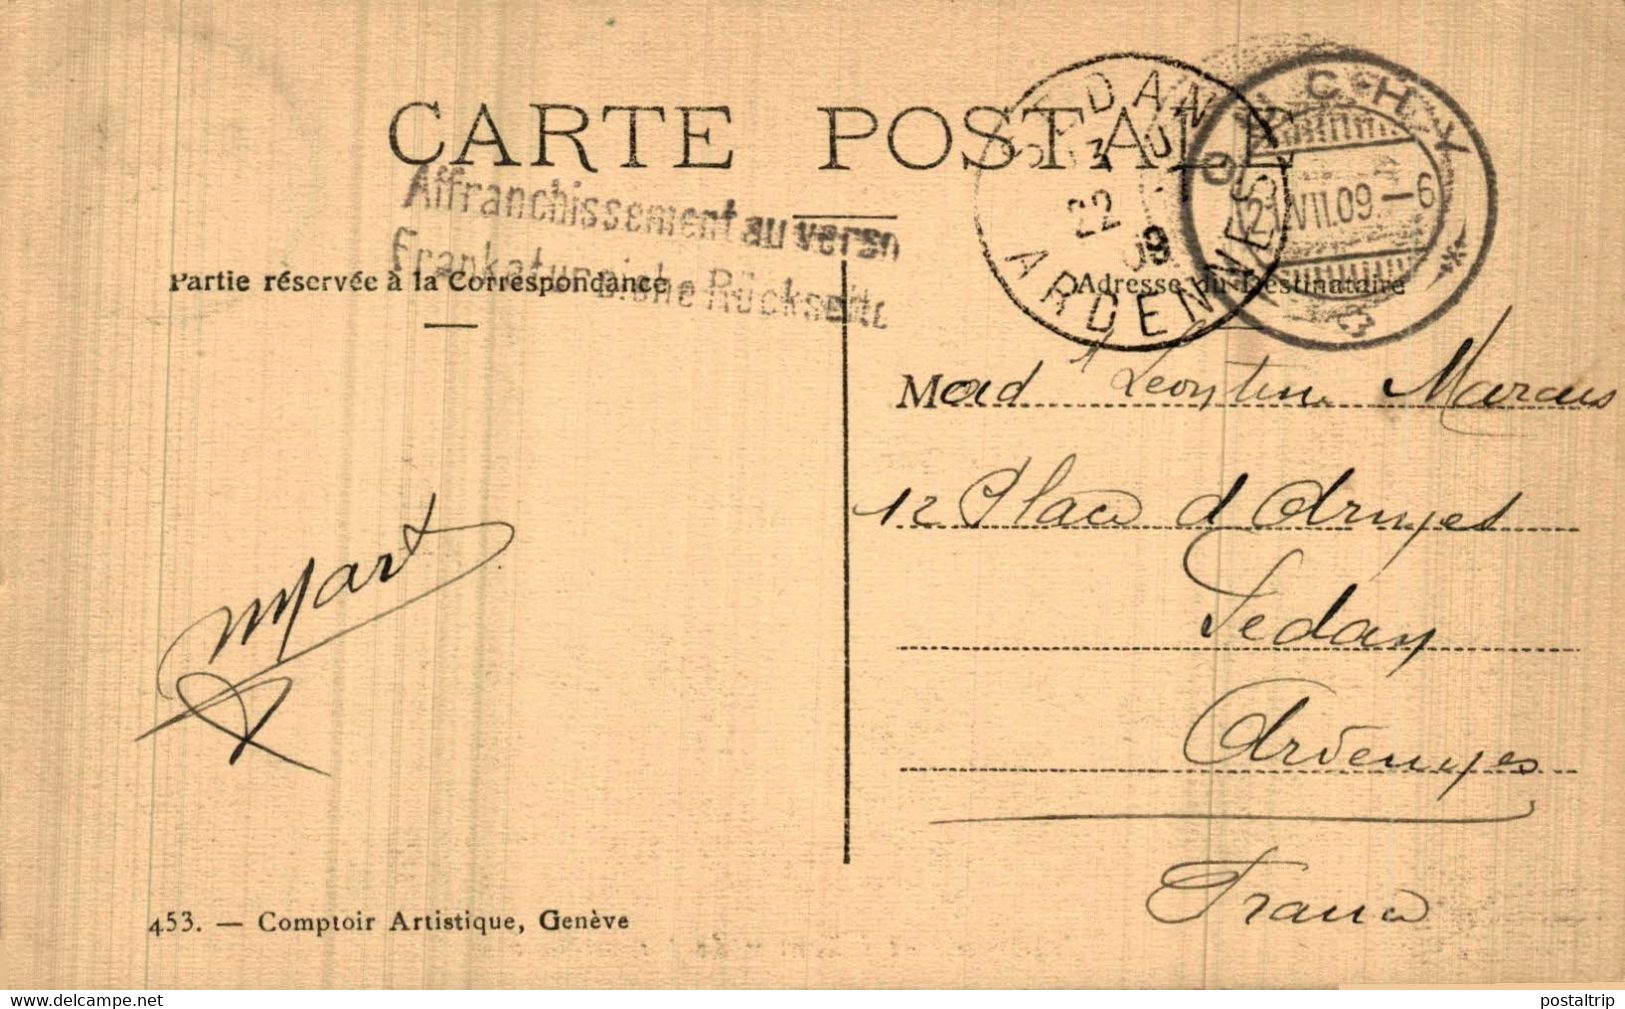 CARTE POSTALE
Affranchissement au verso
Frankatur siehe Rückseite
SEDAN
22
09
ARDENNES
OUCHY
21.VII.09.-6
Partie réservée à la Correspondance
Adresse du Destinataire
Mad Leontine Marcus
12 Place d
Sedan
Ardennes
France
Mart
453. — Comptoir Artistique, Genève
www.delcampe.net
postaltrip